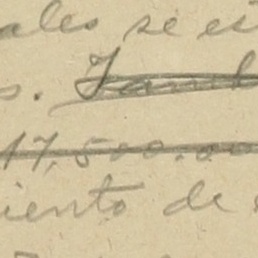 ales se es
s. Tamb
17,500.00
iento de